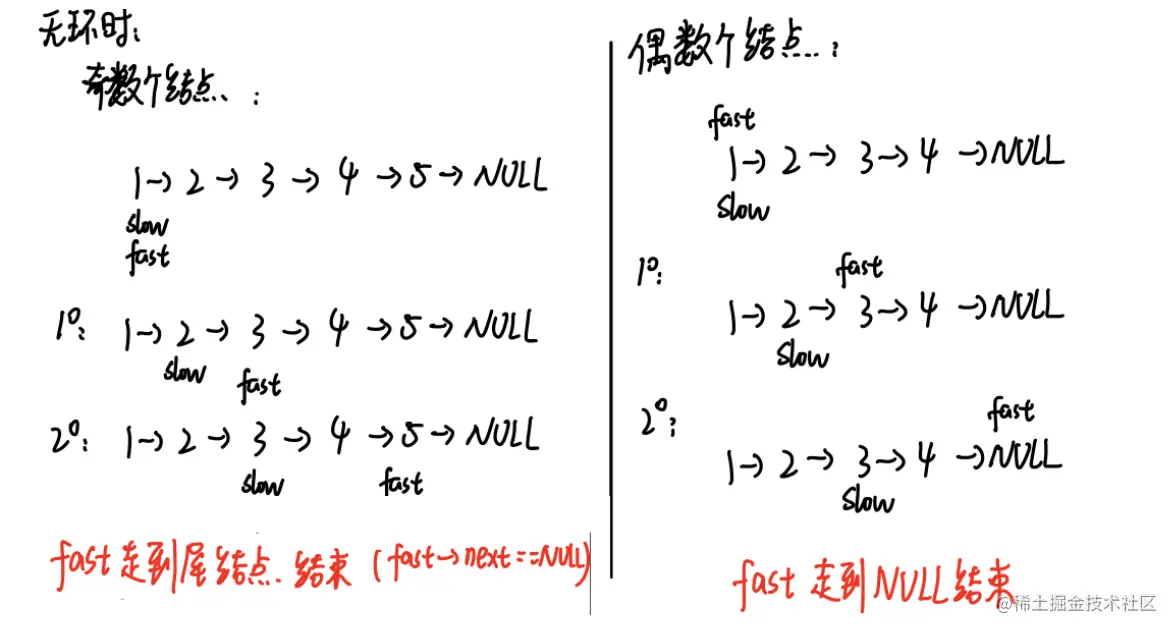 无环时:
奇数个结点.:
1→2→3→4→5→NULL
slow
fast
1⁰: 1→2→3→4→5→NULL
slow fast
2⁰: 1→2→3→4→5→NULL
slow fast
fast走到尾结点.结束(fast→next==NULL)
偶数个结点...:
fast
1→2→3→4→NULL
slow
1⁰: fast
1→2→3→4→NULL
slow
2⁰: fast
1→2→3→4→NULL
slow
fast走到NULL结束
@稀土掘金技术社区